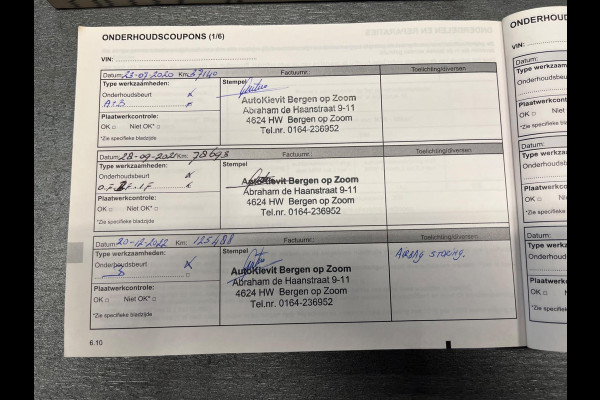 ONDERHOUDSCOUPONS (1/6)
VIN:
Datum: 23-07-2020 Km: 57140 Factuurnr.: Toelichting/diversen
Type werkzaamheden: Stempel
Onderhoudsbeurt x
A+B
Plaatwerkcontrole:
OK □ Niet OK* □
*Zie specifieke bladzijde
AutoKievit Bergen op Zoom
Abraham de Haanstraat 9-11
4624 HW Bergen op Zoom
Tel.nr. 0164-236952
Datum: 28-09-2021 Km: 78693 Factuurnr.: Toelichting/diversen
Type werkzaamheden: Stempel
Onderhoudsbeurt x
Plaatwerkcontrole:
OK □ Niet OK* □
*Zie specifieke bladzijde
AutoKievit Bergen op Zoom
Abraham de Haanstraat 9-11
4624 HW Bergen op Zoom
Tel.nr. 0164-236952
Datum: 20-12-2022 Km: 125488 Factuurnr.: Toelichting/diversen
Type werkzaamheden: Stempel
Onderhoudsbeurt x
Plaatwerkcontrole:
OK □ Niet OK* □
*Zie specifieke bladzijde
AutoKievit Bergen op Zoom
Abraham de Haanstraat 9-11
4624 HW Bergen op Zoom
Tel.nr. 0164-236952
AIRBAG STORING.
6.10
ONDERHOUD
VIN:
Datum:
Type werkzaamh
Onderhoudsbeu
Plaatwerkcontro
OK □ Niet
*Zie specifieke
Datum:
Type werkz
Onderhoud
Plaatwerk
OK □
*Zie speci
Datum:
Type we
Onderho
Plaatwe
OK □
*Zie sp